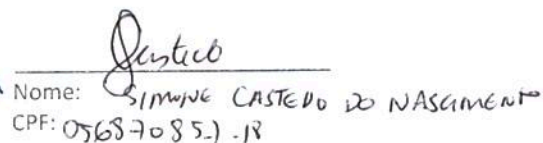 Castelo
Nome: SIMONE CASTELO DO NASCIMENTO
CPF: 056870857-18